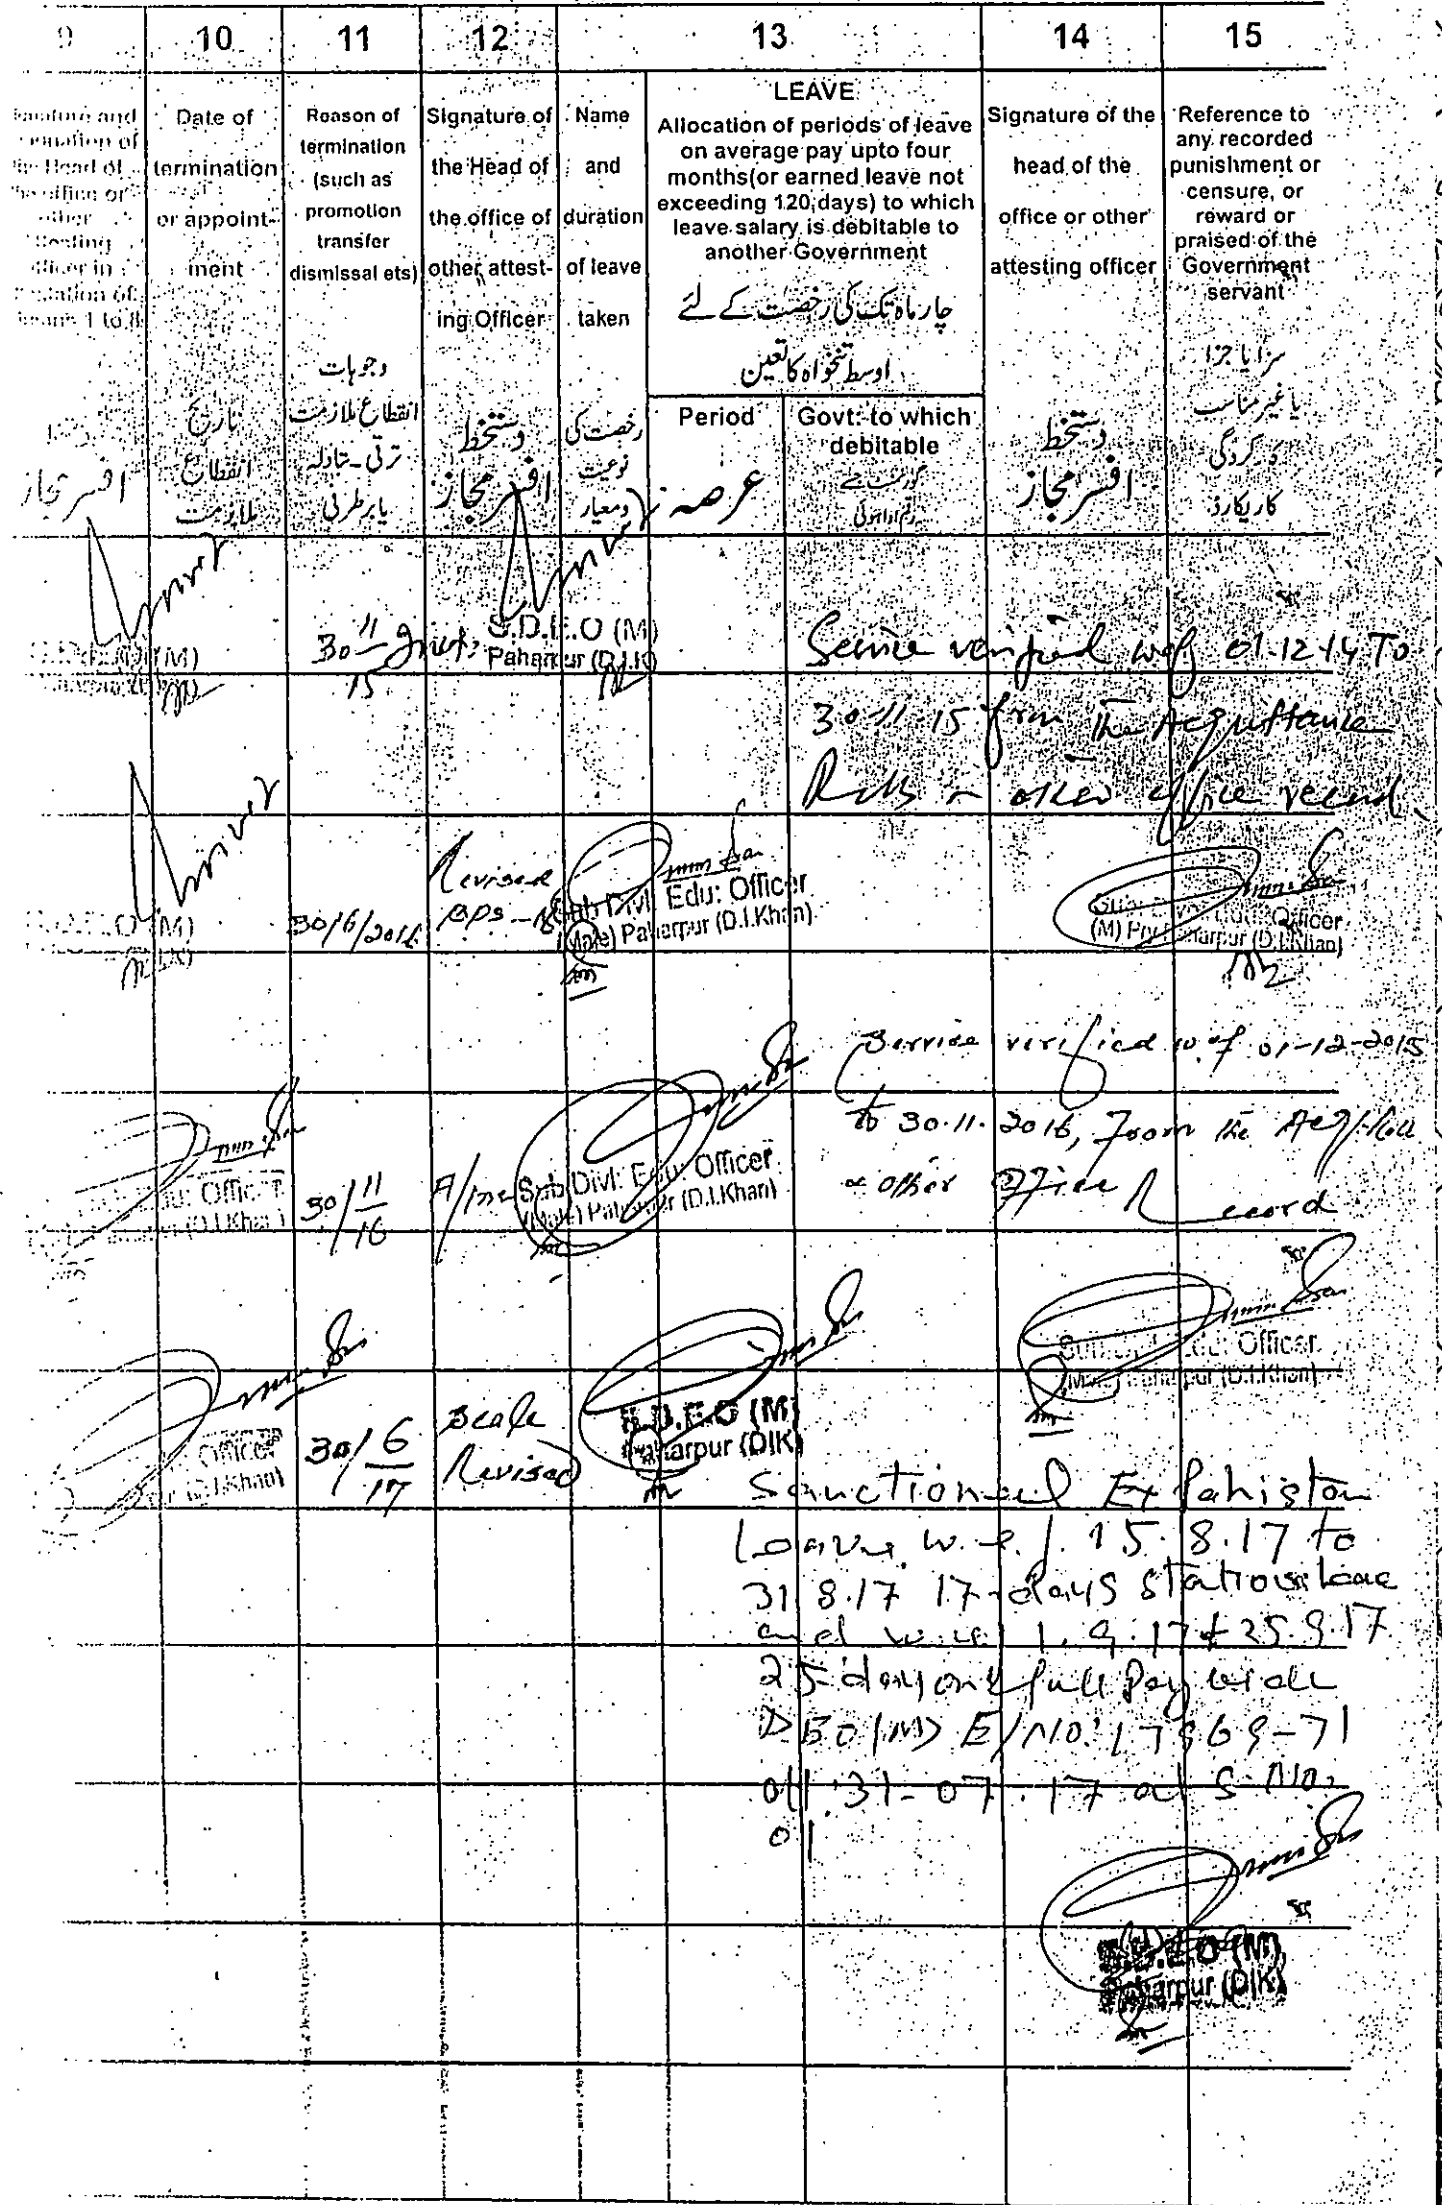 9 10 11 12 13 14 15
Date of
termination
or appoint-
ment
تاریخ
انقطاع
ملازمت
Reason of
termination
(such as
promotion
transfer
dismissal ets)
وجوہات
انقطاع ملازمت
ترقی - تبادلہ
یا برطرفی
Signature of
the Head of
the office of
other attest-
ing Officer
دستخط
افسر مجاز
Name
and
duration
of leave
taken
رخصت کی
نوعیت
ومعیار
LEAVE
Allocation of periods of leave
on average pay upto four
months(or earned leave not
exceeding 120 days) to which
leave salary is debitable to
another Government
چار ماہ تک کی رخصت کے لئے
اوسط تنخواہ کا تعین
Period
عرصہ
Govt: to which
debitable
Signature of the
head of the
office or other
attesting officer
دستخط
افسر مجاز
Reference to
any recorded
punishment or
censure, or
reward or
praised of the
Government
servant
سزا یا جزا
یا غیر مناسب
کارکردگی
کا ریکارڈ
and
of
Head of
office or
other
officer in
of
1 to 8
افسر مجاز
(M)
30 11/15
S.D.E.O (M)
Paharpur (D.I.K)
Service verified wef 01-12-14 To
30-11-15 from the Acquittance
Rolls other office record
(M)
30/6/2016
Revised
BPS-
Sub Divl: Edu: Officer
(Male) Paharpur (D.I.Khan)
Officer
(M) Pry Paharpur (D.I.Khan)
Service verified w.e.f 01-12-2015
to 30.11.2016, From the Acq/Roll
other Office Record
Officer
(D.I.Khan)
30/11/16
Sub Divl: Edu: Officer
(Male) Paharpur (D.I.Khan)
Edu: Officer
(Male) Paharpur (D.I.Khan)
Officer
(D.I.Khan)
30/6/17
Scale
Revised
S.D.E.O (M)
Paharpur (DIK)
Sanctioned Ex Pakistan
Leave w.e.f. 15.8.17 to
31.8.17 17-days Station leave
and w.e.f 1.9.17 t 25.9.17
25-days on full Pay vide
DEO (M) E/NO. 17969-71
31-07-17 at S.NO.
01
S.D.E.O (M)
Paharpur (DIK)